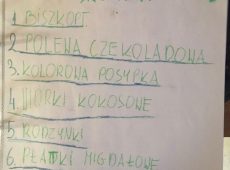 1. BISZKOPT
2. POLEWA CZEKOLADOWA
3. KOLOROWA POSYPKA
4. WIÓRKI KOKOSOWE
5. RODZYNKI
6. PŁATKI MIGDAŁOWE